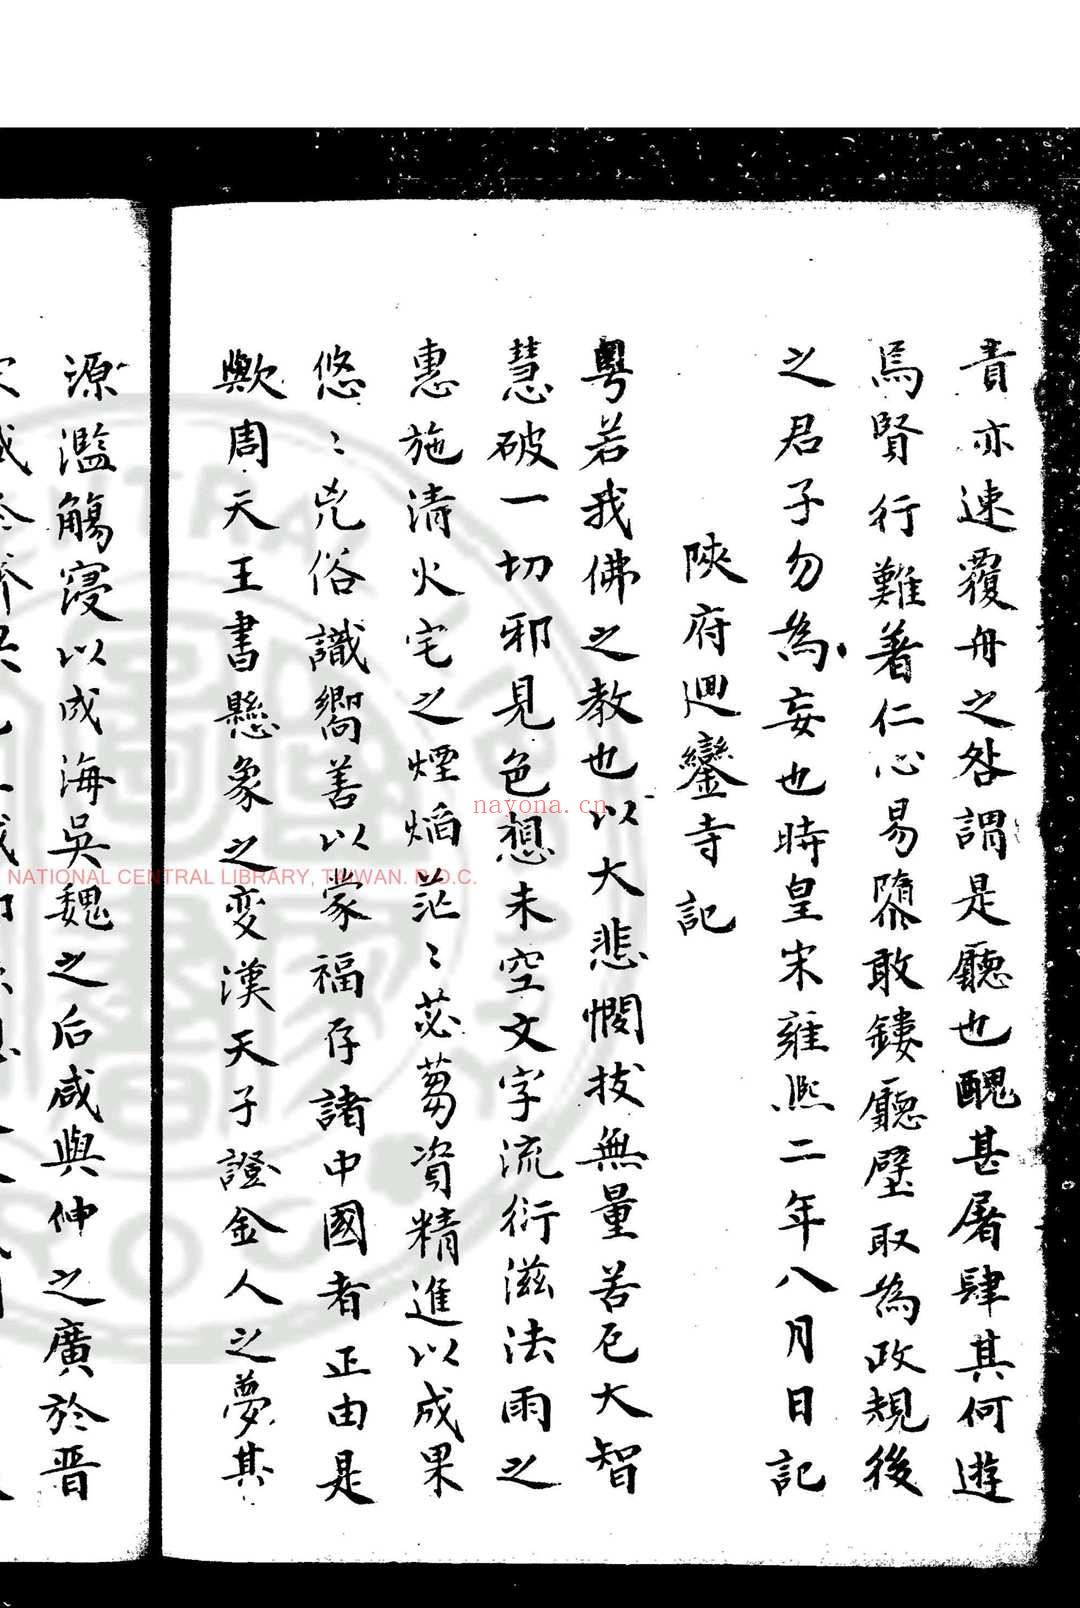 責亦速覆舟之咎謂是廳也醜甚屠肆其何遊
焉賢行難著仁心易隳敢鏤廳壁取為政規後
之君子勿為妄也時皇宋雍熙二年八月日記
陝府迴鑾寺記
粤若我佛之教也以大悲憫拔無量苦厄大智
慧破一切邪見色想未空文字流衍滋法雨之
惠施清火宅之煙焰茫〻苾蒭資精進以成果
悠〻凡俗識嚮善以蒙福存諸中國者正由是
歟周天王書懸象之变漢天子證金人之夢其
源濫觴寖以成海吳魏之后咸與伸之廣於晋
NATIONAL CENTRAL LIBRARY, TAIWAN. R.O.C.
nayona.cn